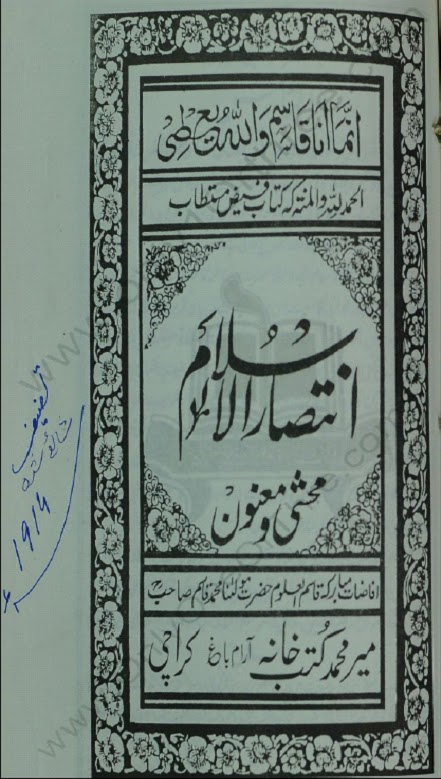 انما انا قاسم واللہ یعطی
الحمد للہ والمنۃ کہ کتاب فیض مستطاب
انتصار الاسلام
محشی و معنون
افاضات مبارکہ قاسم العلوم حضرت مولٰنا محمد قاسم صاحبؒ
میر محمد کتب خانہ آرام باغ کراچی
تصنیف
1914ء